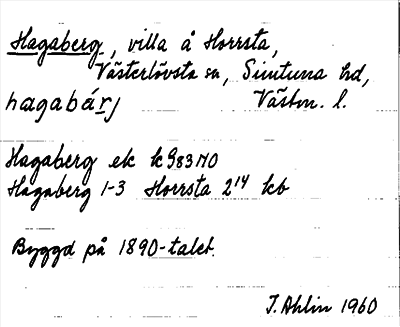 Hagaberg, villa å Horrsta,
Västerlövsta sn, Simtuna hd,
hagabárj Västm. l.
Hagaberg ek k 983 NO
Hagaberg 1-3 Horrsta 2¹⁴ kb
Byggd på 1890-talet.
T. Ahlin 1960